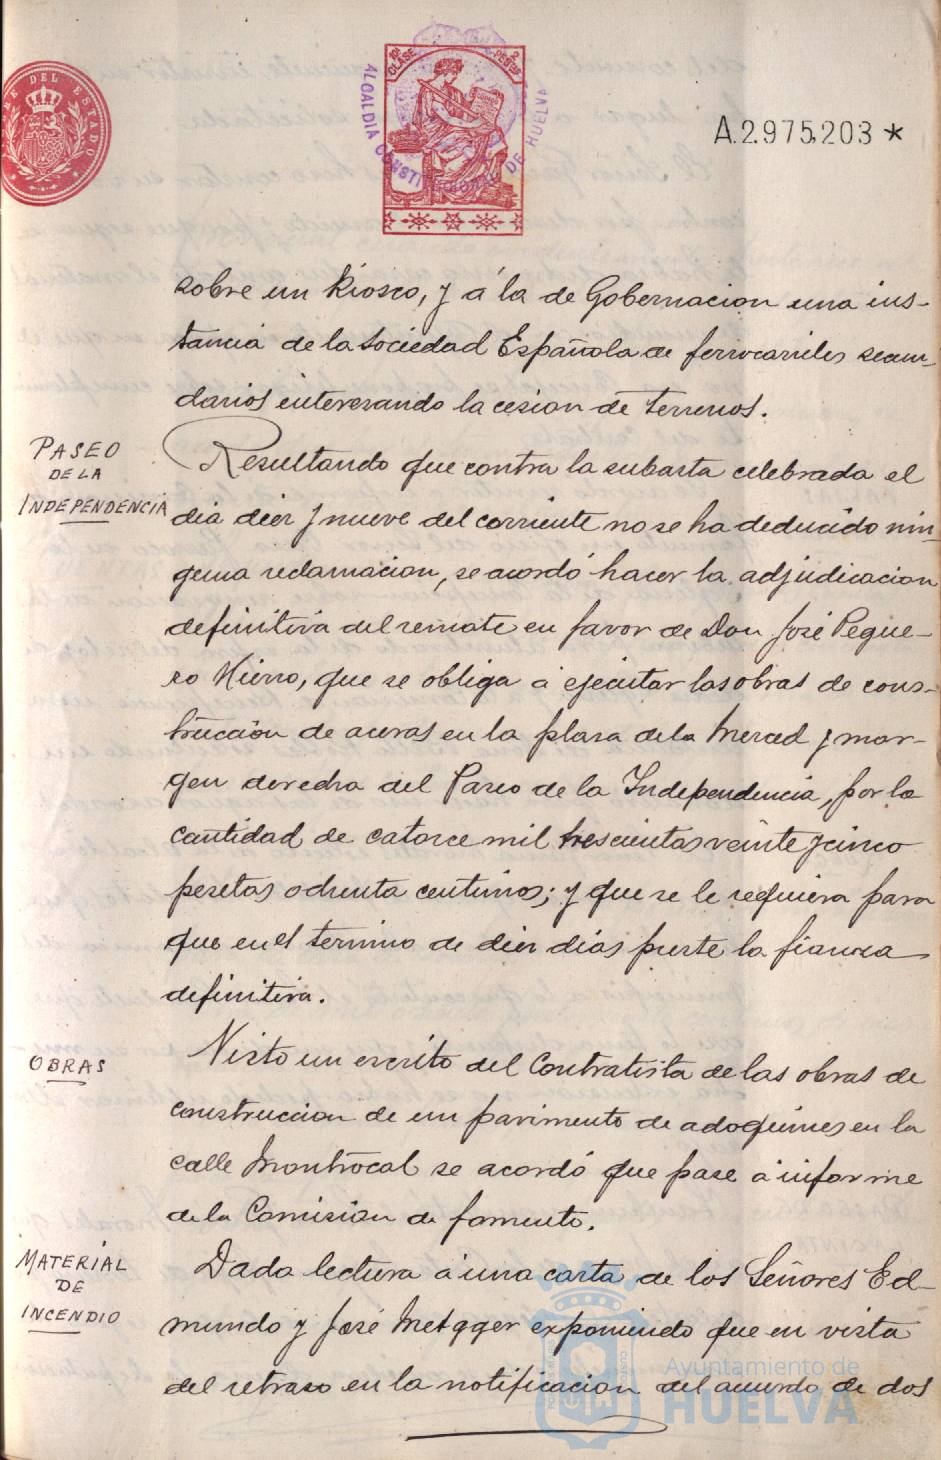 DEL ESTADO
10ª CLASE
2 PESETAS
ALCALDIA CONSTITUCIONAL DE HUELVA
A.2.975,203 *
sobre un Kiosco, y á la de Gobernacion una ins-
tancia de la Sociedad Española de ferrocarriles secun-
darios interesando la cesion de terrenos.
PASEO
DE LA
INDEPENDENCIA
Resultando que contra la subasta celebrada el
dia diez y nueve del corriente no se ha deducido nin-
guna reclamacion, se acordó hacer la adjudicacion
definitiva del remate en favor de Don José Pegue-
ro Hierro, que se obliga á ejecutar las obras de cons-
trucción de aceras en la plaza de la Merced y mar-
gen derecha del Paseo de la Independencia, por la
cantidad de catorce mil trescientas veinte y cinco
pesetas ochenta centimos; y que se le requiera para
que en el termino de diez dias preste la fianza
definitiva.
OBRAS
Visto un escrito del Contratista de las obras de
construccion de un pavimento de adoquines en la
calle Montrocal se acordó que pase á informe
de la Comision de fomento.
MATERIAL
DE
INCENDIO
Dada lectura á una carta de los Señores Ed-
mundo y José Metzger exponiendo que en vista
del retraso en la notificacion del acuerdo de dos
Ayuntamiento de
HUELVA